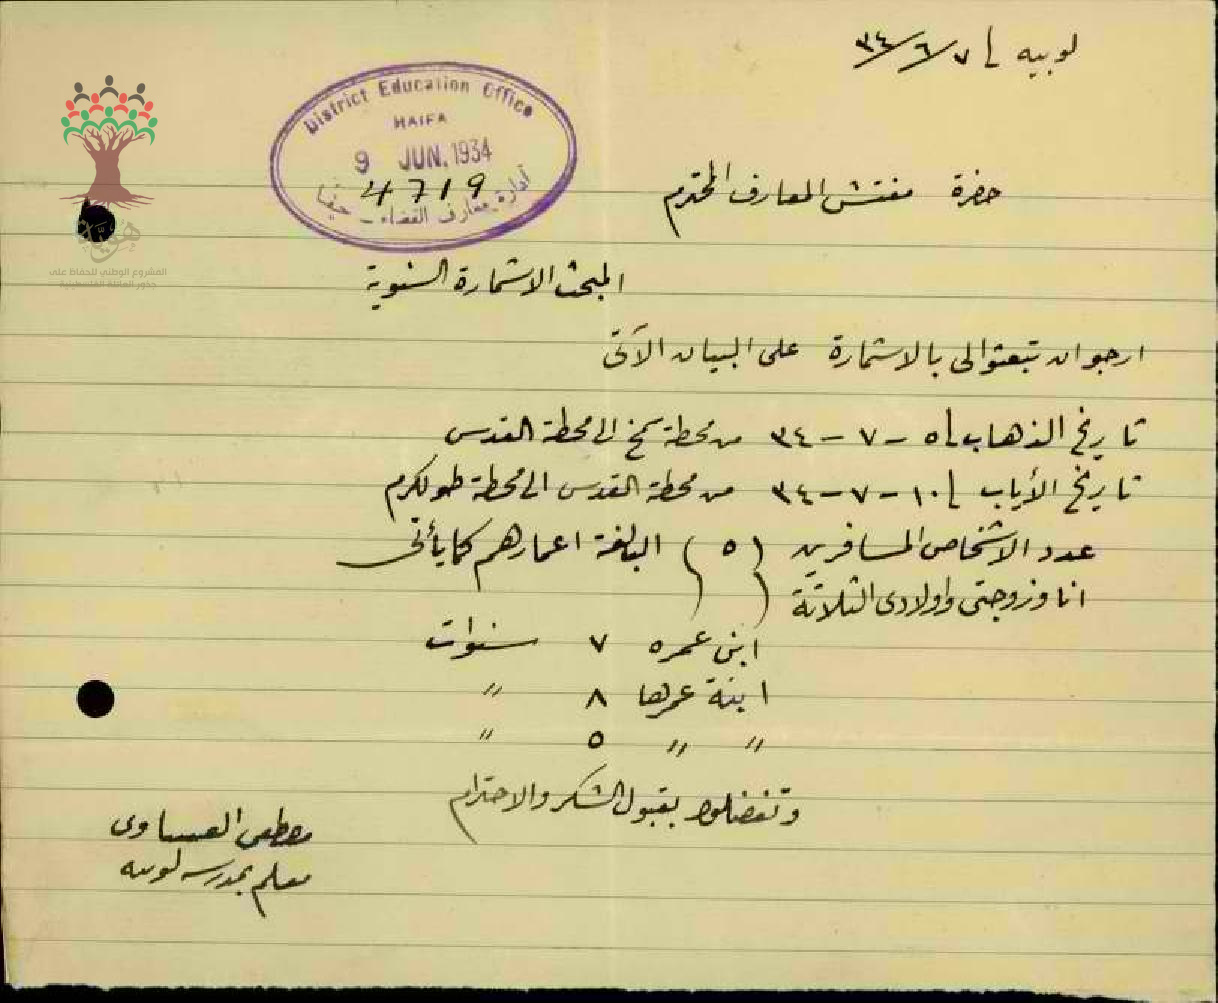 لوبيه ٧/٦/٣٤
District Education Office
HAIFA
9 JUN. 1934
4719
ادارة معارف القضاء - حيفا
هوية
المشروع الوطني للحفاظ على
جذور العائلة الفلسطينية
حضرة مفتش المعارف المحترم
المبحث الاستمارة السنوية
ارجو ان تبعثوا لي بالاستمارة على البيان الآتي
تاريخ الذهاب ٥ - ٧ - ٣٤ من محطة سمخ الى محطة القدس
تاريخ الأياب ١٠ - ٧ - ٣٤ من محطة القدس الى محطة طولكرم
عدد الاشخاص المسافرين (٥) البالغة اعمارهم كما يأتي
انا وزوجتي واولادي الثلاثة
ابني عمره ٧ سنوات
ابنة عمرها ٨ "
" " ٥ "
وتفضلوا بقبول الشكر والاحترام
مصطفى العيساوي
معلم بمدرسة لوبيه